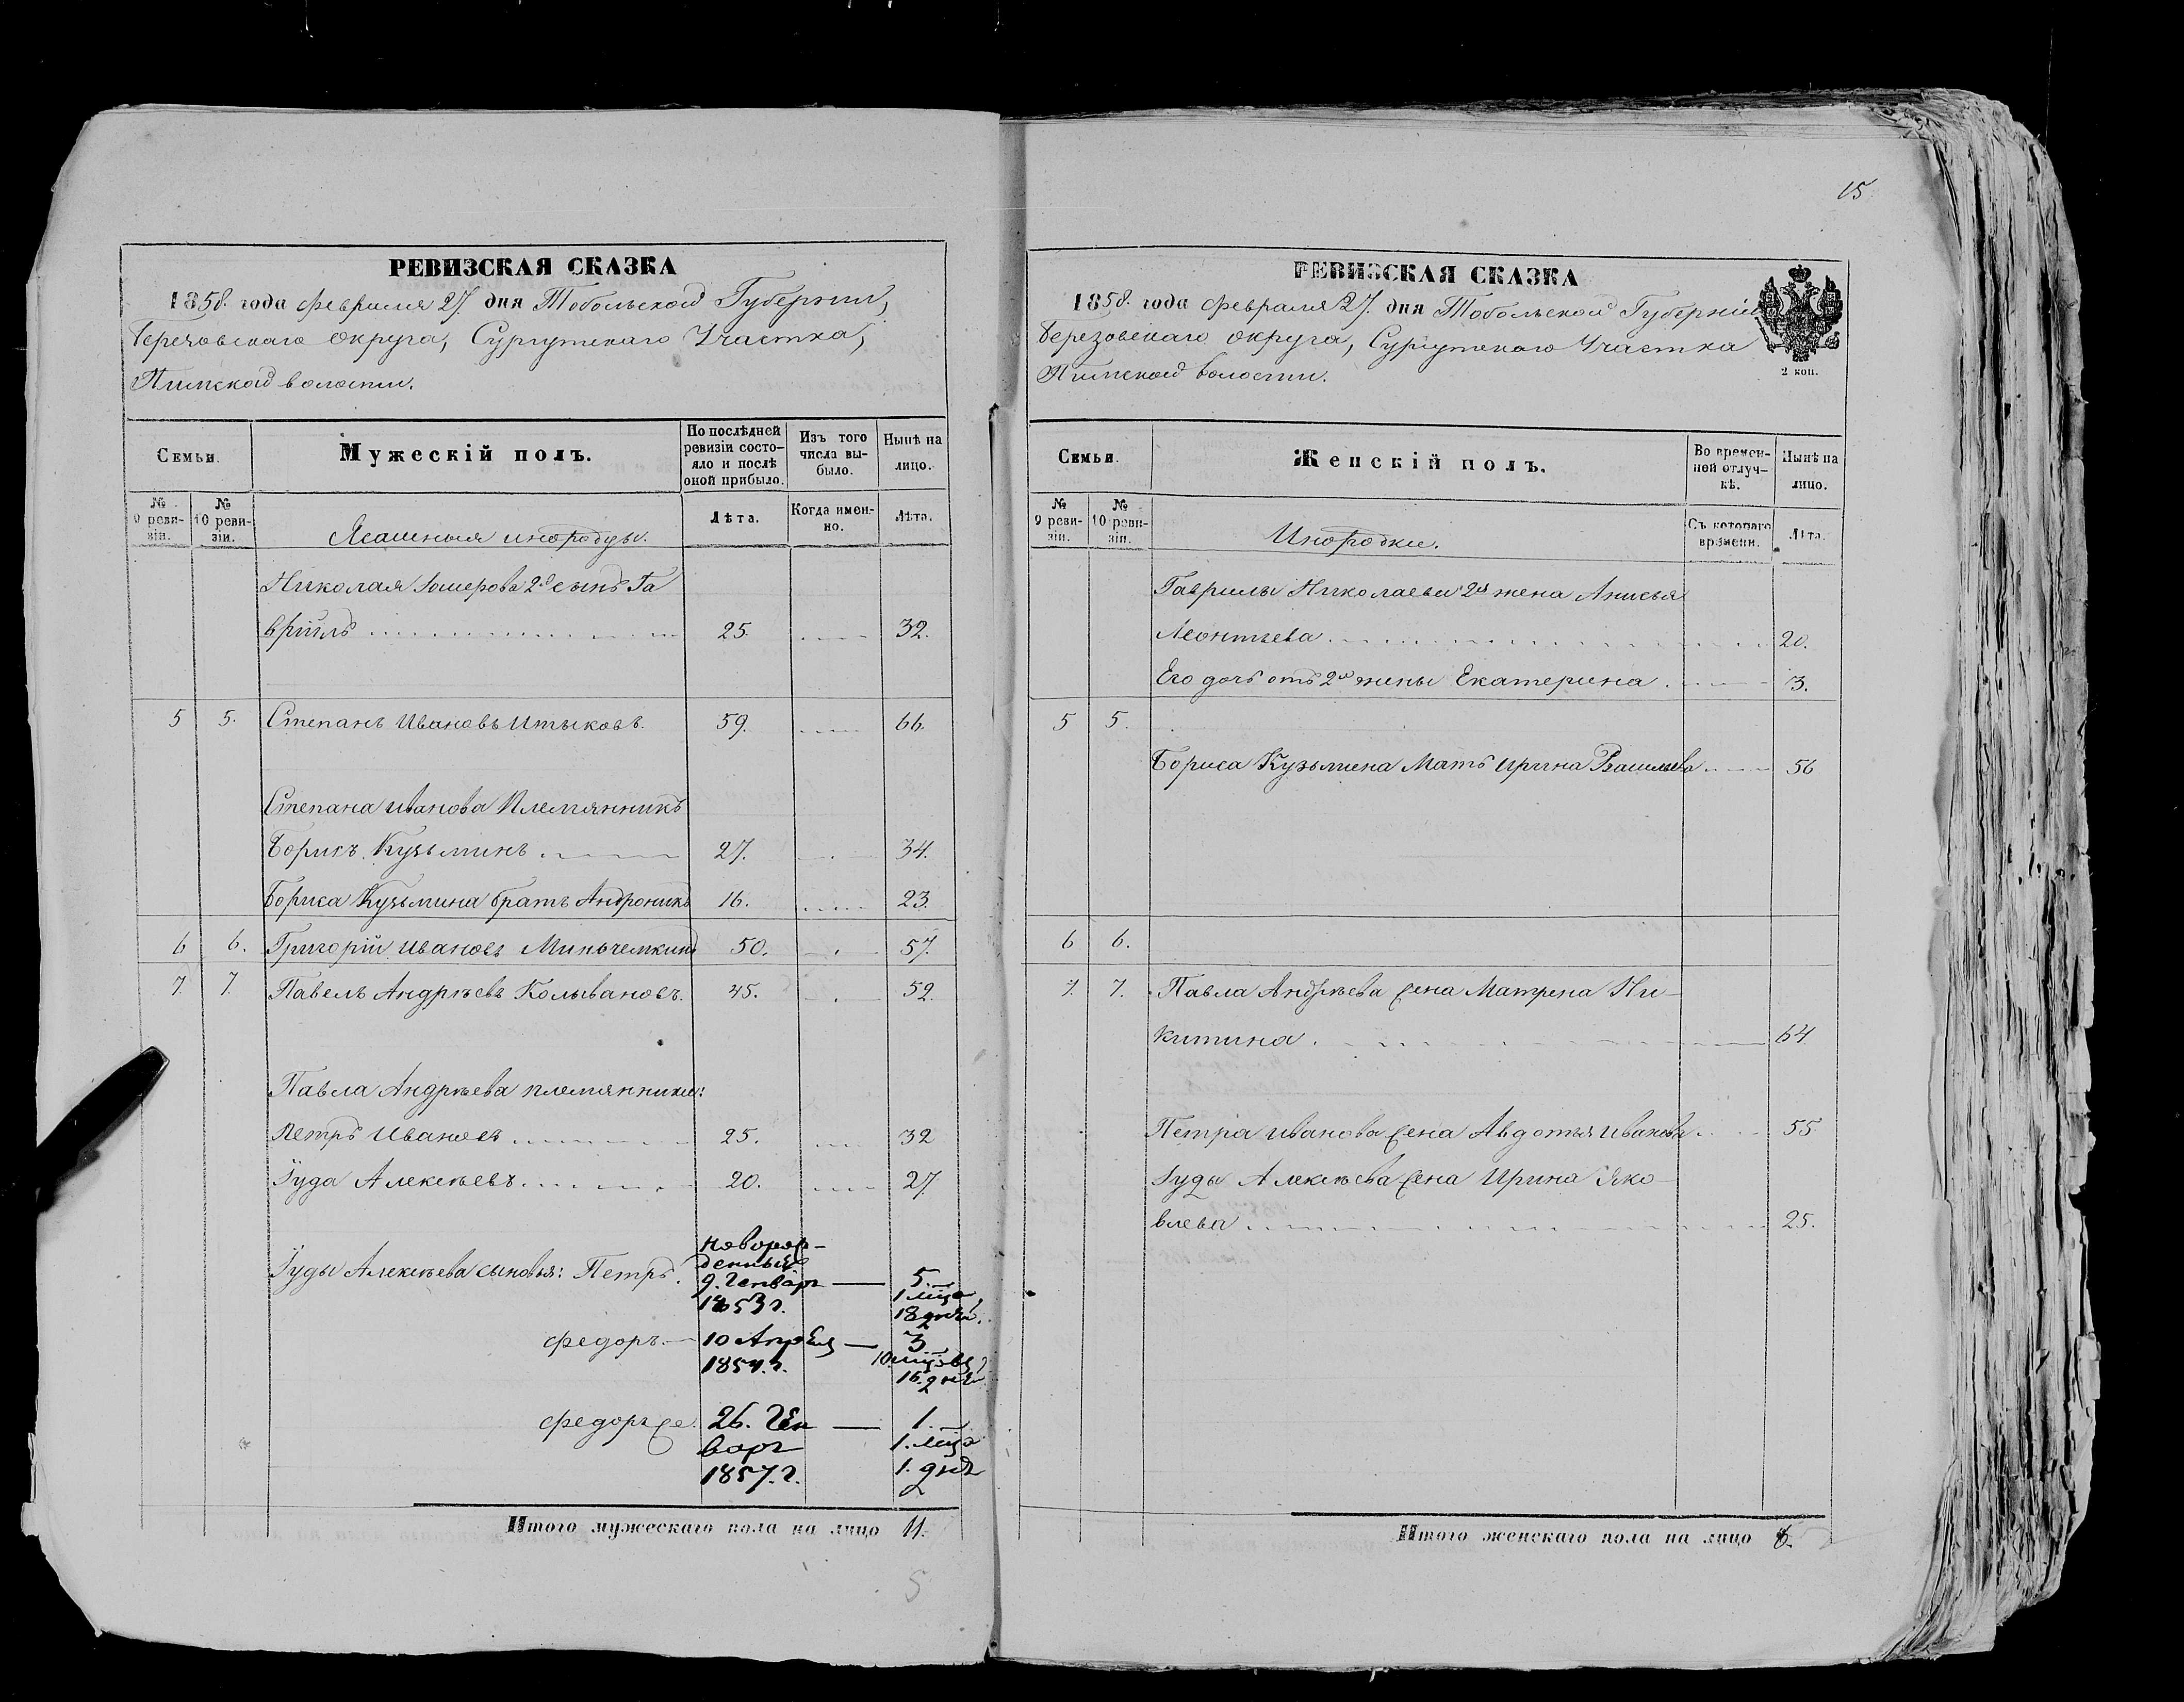 15
РЕВИЗСКАЯ СКАЗКА
1858. года февраля 27. дня Тобольской Губернии,
Березовскаго округа, Сургутскаго Участка,
Пимской волости.
Семьи.
Мужескій полъ.
По послѣдней ревизіи состо-
яло и послѣ оной прибыло.
Изъ того числа вы-
было.
Нынѣ на лицо.
№ 9 реви-
зіи.
№ 10 реви-
зіи.
Ясашныя инородцы.
Лѣта.
Когда имен-
но.
Лѣта.
Николая 2й сынъ Га
вріилъ 25. 32.
5 5. Степанъ Ивановъ Итыковъ. 59. 66.
Степана Иванова Племянникъ
Борисъ Кузьминъ 27. 34.
Бориса Кузьмина братъ Андроникъ 16. 23.
6 6. Григорій Ивановъ Миньчемкинъ 50. 57.
7 7 Павелъ Андрѣевъ Колывановъ. 45. 52.
Павла Андрѣева племянники:
Петръ Ивановъ 25. 32
Іуда Алексѣевъ 20. 27.
Іуды Алексѣева сыновья: Петръ.
новорож-
денныя
9. Генваря — 5.
1853 г. 1 мѣца,
18 дней.
Федоръ — 10 Апрѣля — 3
1854. г. 10 мѣцовъ
16. дней
Федоръ же. 26. Ген — 1.
варя 1. мѣца
1857. г. 1. дня
Итого мужескаго пола на лицо 11.
5
РЕВИЗСКАЯ СКАЗКА
1858. года февраля 27. дня Тобольской Губерніи
Березовскаго округа, Сургутскаго Участка
Пимской волости.
2 коп.
Семьи.
Женскій полъ.
Во времен-
ной отлуч-
кѣ.
Нынѣ на лицо.
№ 9 реви-
зіи.
№ 10 реви-
зіи.
Инородки.
Съ котораго времени.
Лѣта.
Гаврилы Николаева 2я жена Анисья
Леонтьева 20.
Его дочь отъ 2й жены Екатерина 3.
5 5.
Бориса Кузьмина Мать Ирина Васильева 56
6 6.
7. 7. Павла Андрѣева жена Матрена Ни-
китина 64
Петра Иванова жена Авдотья Иванова 55
Іуды Алексѣева жена Ирина Яко-
влева 25.
Итого женскаго пола на лицо 6.